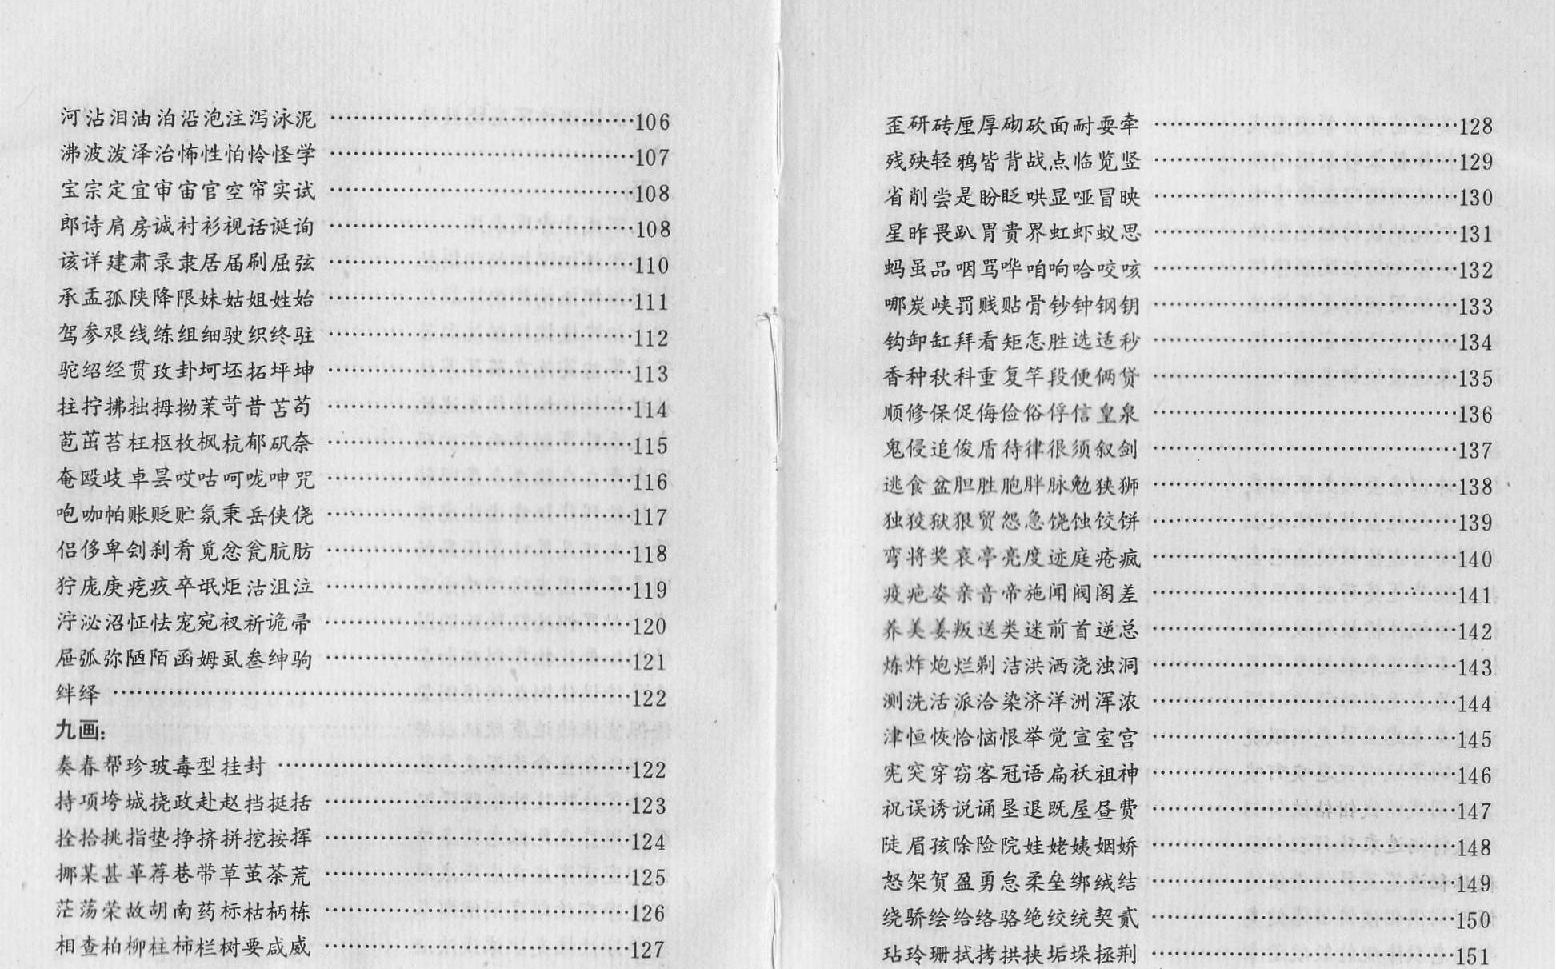 河沾泪油泊沿泡注泻泳泥……106
沸波泼泽治怖性怕怜怪学……107
宝宗定宜审宙官空帘实试……108
郎诗肩房诚衬衫视话诞询……108
该详建肃录隶居届刷屈弦……110
承孟孤陕降限妹姑姐姓始……111
驾参艰线练组细驶织终驻……112
驼绍经贯玫卦坷坯拓坪坤……113
拄拧拂拙拇拗茉苛昔苫苟……114
苞茁苔枉枢枚枫杭郁矾奈……115
奄殴歧卓昙哎咕呵咙呻咒……116
咆咖帕账贬贮氛秉岳侠侥……117
侣侈卑刽刹肴觅忿瓮肮肪……118
狞庞庚疙疚卒氓炬沽沮泣……119
泞泌沼怔怯宠宛衩祈诡帚……120
屉弧弥陋陌函姆虱叁绅驹……121
绊绎……122
九画:
奏春帮珍玻毒型挂封……122
持项垮城挠政赴赵挡挺括……123
拴拾挑指垫挣挤拼挖按挥……124
挪某甚革荐巷带草茧茶荒……125
茫荡荣故胡南药标枯柄栋……126
相查柏柳柱柿栏树要咸威……127
歪研砖厘厚砌砍面耐耍牵……128
残殃轻鸦皆背战点临览竖……129
省削尝是盼眨哄显哑冒映……130
星昨畏趴胃贵界虹虾蚁思……131
蚂虽品咽骂哗咱响哈咬咳……132
哪炭峡罚贱贴骨钞钟钢钥……133
钩卸缸拜看矩怎胜选适秒……134
香种秋科重复竿段便俩贷……135
顺修保促侮俭俗俘信皇泉……136
鬼侵追俊盾待律很须叙剑……137
逃食盆胆胜胞胖脉勉狭狮……138
独狡狱狠贸怨急饶蚀饺饼……139
弯将奖哀亭亮度迹庭疮疯……140
疫疤姿亲音帝施闻阀阁差……141
养美姜叛送类迷前首逆总……142
炼炸炮烂剃洁洪洒浇浊洞……143
测洗活派洽染济洋洲浑浓……144
津恒恢恰恼恨举觉宣室宫……145
宪突穿窃客冠语扁袄祖神……146
祝误诱说诵垦退既屋昼费……147
陡眉孩除险院娃姥姨姻娇……148
怒架贺盈勇怠柔垒绑绒结……149
绕骄绘给络骆绝绞统契贰……150
玷玲珊拭拷拱挟垢垛拯荆……151